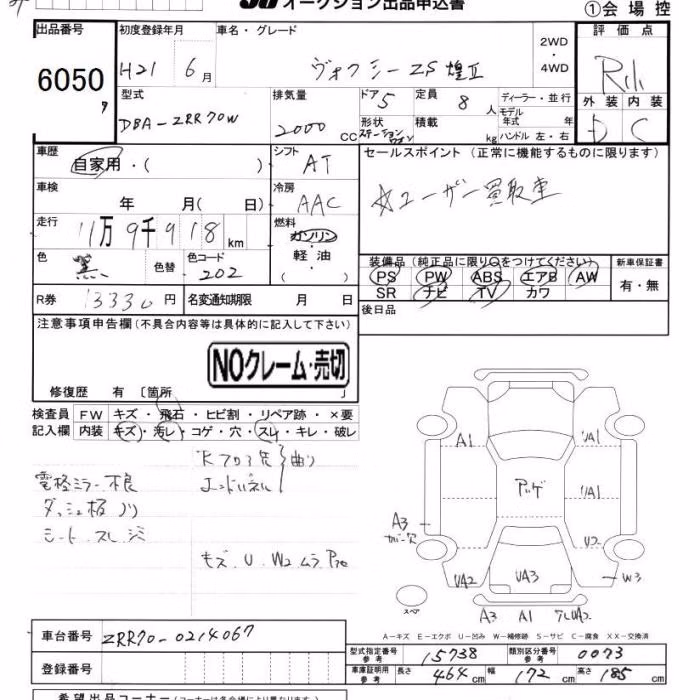 オークション出品申込書
①会場控
出品番号 初度登録年月 車名・グレード 2WD・4WD 評価点
6050 H21 6月 ヴォクシーZS煌Ⅱ
型式 排気量 ドア 5 定員 8人 ディーラー・並行 外装 内装
DBA-ZRR70W 2000 CC 形状 ステーションワゴン 積載 kg モデル年式 年 ハンドル 左・右 D C
車歴 自家用・( ) シフト AT セールスポイント (正常に機能するものに限ります)
車検 年 月( 日) 冷房 AAC ☆ユーザー買取車
走行 11万9千918km 燃料 ガソリン・軽油・( )
色 黒 色替 色コード 202 装備品(純正品に限り○をつけてください) 新車保証書
PS PW ABS エアB AW 有・無
SR ナビ TV カワ
R券 13330円 名変通知期限 月 日 後日品
注意事項申告欄(不具合内容等は具体的に記入して下さい)
NOクレーム・売切
修復歴 有 〔箇所 〕
検査員 FW キズ・飛石・ヒビ割・リペア跡・×要
記入欄 内装 キズ・汚レ・コゲ・穴・スレ・キレ・破レ
電格ミラー不良
ダッシュ板ノリ
シート スレ
キズ.U.W2ムラ
A1 UA1
UA1
A3
U2
UA2 UA3 W3
スペア
A3 A1
A-キズ E-エクボ U-凹み W-補修跡 S-サビ C-腐食 XX-交換済
車台番号 ZRR70-0214067 型式指定番号 参考 15738 類別区分番号 参考 0073
登録番号 車庫証明用 参考 長さ 464cm 幅 172cm 高さ 185cm
希望出品コーナー(コーナーは各会場により異なります)